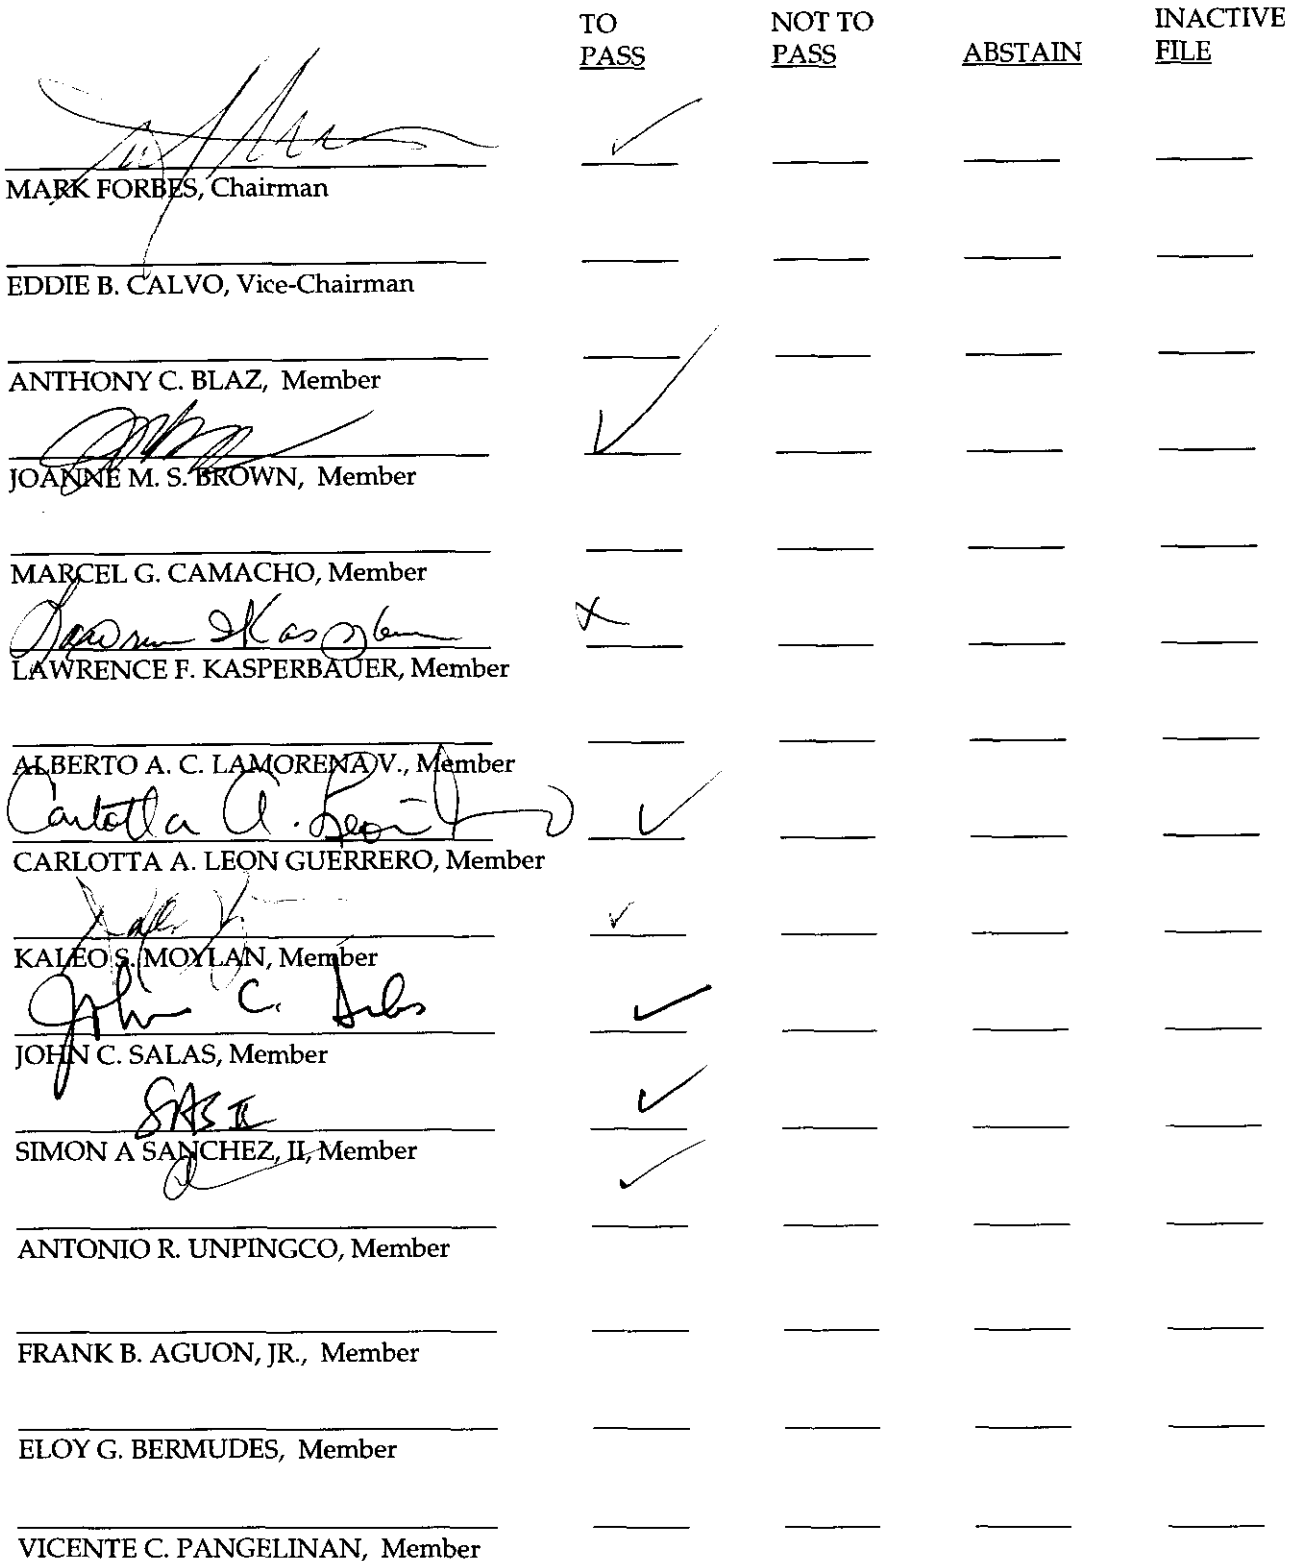 TO PASS NOT TO PASS ABSTAIN INACTIVE FILE
✓
MARK FORBES, Chairman
EDDIE B. CALVO, Vice-Chairman
ANTHONY C. BLAZ, Member
✓
JOANNE M. S. BROWN, Member
MARCEL G. CAMACHO, Member
x
LAWRENCE F. KASPERBAUER, Member
ALBERTO A. C. LAMORENA V., Member
Carlotta A. Leon ✓
CARLOTTA A. LEON GUERRERO, Member
✓
KALEO S. MOYLAN, Member
John C. Salas ✓
JOHN C. SALAS, Member
SAS II ✓
SIMON A SANCHEZ, II, Member
✓
ANTONIO R. UNPINGCO, Member
FRANK B. AGUON, JR., Member
ELOY G. BERMUDES, Member
VICENTE C. PANGELINAN, Member